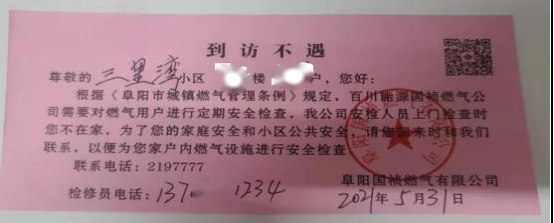 到访不遇
尊敬的三里湾小区 楼 户，您好：
根据《阜阳市城镇燃气管理条例》规定，百川能源国祯燃气公
司需要对燃气用户进行定期安全检查，我公司安检人员上门检查时
您不在家，为了您的家庭安全和小区公共安全，请您回来时和我们
联系，以便为您家户内燃气设施进行安全检查
联系电话：2197777
阜阳国祯燃气有限公司
检修员电话：137 1234 2021年5月31日